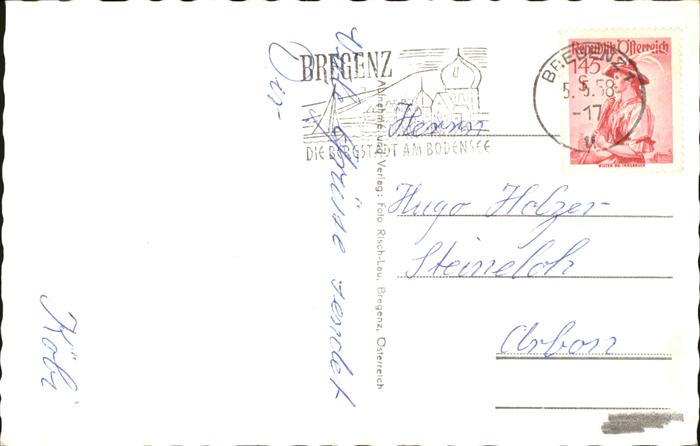 Viele Grüsse sendet
Dir
Köbi
BREGENZ
DIE BERGSTADT AM BODENSEE
Aufnahme und Verlag: Foto Risch-Lau, Bregenz, Österreich
BREGENZ 1
5.5.58
-17
Republik Österreich
1.45
S
Herrn
Hugo Holzer
Steineloh
Arbon